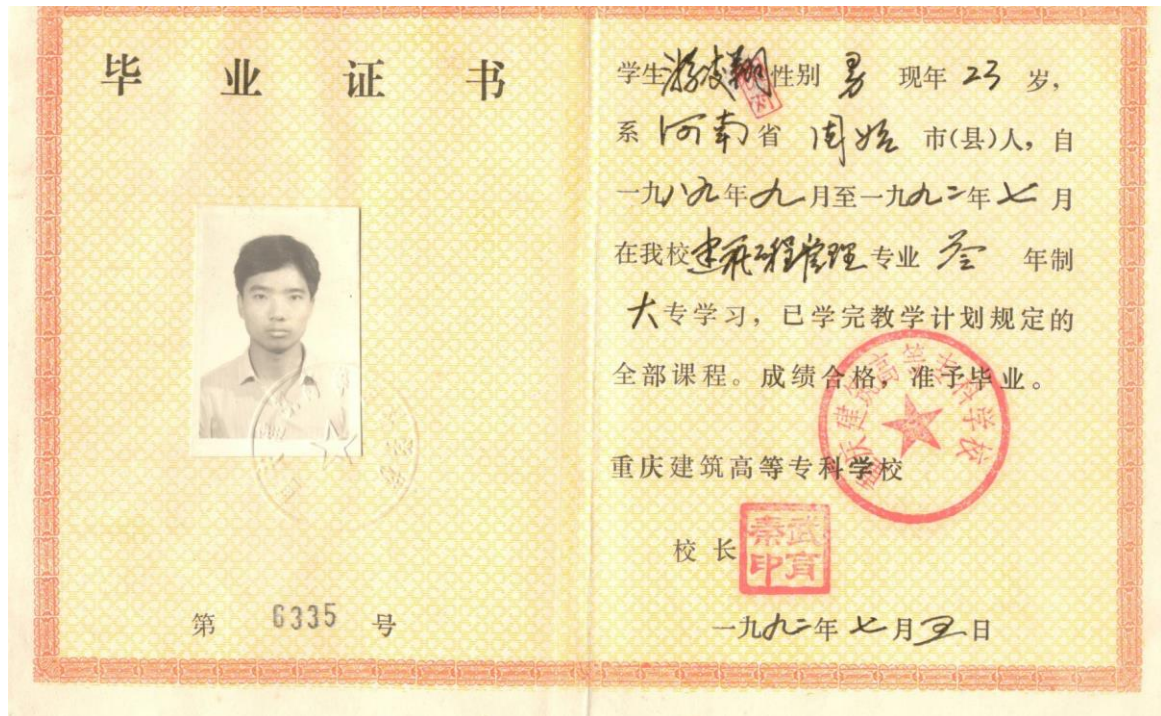 毕业证书
第 6335 号
学生游凌翔性别 男 现年 23 岁,
系 河南省 固始 市(县)人, 自
一九八九年九月至一九九二年七月
在我校建筑工程管理专业 叁 年制
大专学习, 已学完教学计划规定的
全部课程。成绩合格, 准予毕业。
重庆建筑高等专科学校
重庆建筑高等专科学校
校长
武育秦印
一九九二年七月五日